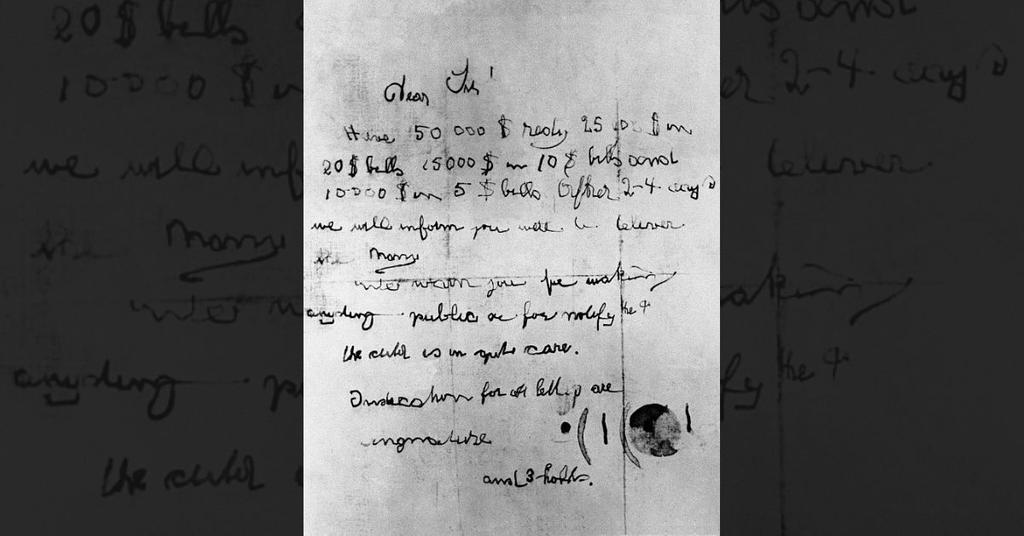 Dear Sir!
Have 50 000 $ redy 25 000 $ in
20 $ bills 15000 $ in 10 $ bills and
10000 $ in 5 $ bills After 2-4 days
we will inform you were to deliver
the Mony
warn you for making
anyding public or for notify the
the child is in gute care.
Indication for all letters are
singnature
and 3 holds.